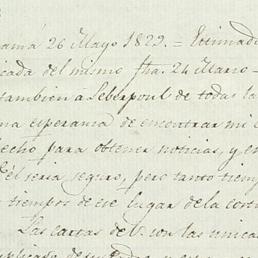 amá 26 Mayo 1829.= Estimado
icada del mismo fha. 24 Marzo
tambien a Leberpoul de todas la
na esperanza de encontrar mi e
echo para obtener noticias, y en
el seria seguro, pero tanto tiemp
tiempos de ese lugar de la cort
Las cartas de V. son las unicas